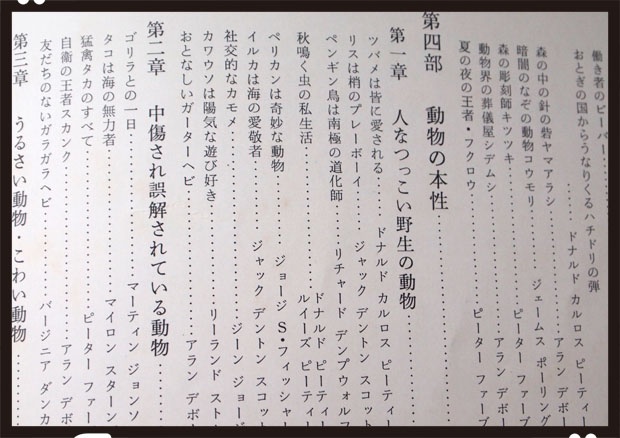 働き者のビーバー……
おとぎの国からうなりくるハチドリの弾
……ドナルド カルロス ピーティー
森の中の針の砦ヤマアラシ……アラン デボ
暗闇のなぞの動物コウモリ……ジェームス ポーリング
森の彫刻師キツツキ……ピーター ファーブ
動物界の葬儀屋シデムシ……アラン デボ
夏の夜の王者・フクロウ……ピーター ファーブ
第四部 動物の本性……
第一章 人なつっこい野生の動物……
ツバメは皆に愛される……ドナルド カルロス ピーティー
リスは梢のプレーボーイ……ジャック デントン スコット
ペンギン鳥は南極の道化師……リチャード デンプウォルフ
秋鳴く虫の私生活……ドナルド ピーティー
ルイーズ ピーティー
ペリカンは奇妙な動物……ジョージ S・フィッシャー
イルカは海の愛敬者……ジャック デントン スコット
社交的なカモメ……ジーン ジョージ
カワウソは陽気な遊び好き……リーランド スト
おとなしいガーターヘビ……アラン デボー
第二章 中傷され誤解されている動物……
ゴリラとの一日……マーティン ジョンソ
タコは海の無力者……マイロン スターン
猛禽タカのすべて……ピーター ファー
自衛の王者スカンク……アラン デボ
友だちのないガラガラヘビ……バージニア ダンカ
第三章 うるさい動物・こわい動物……